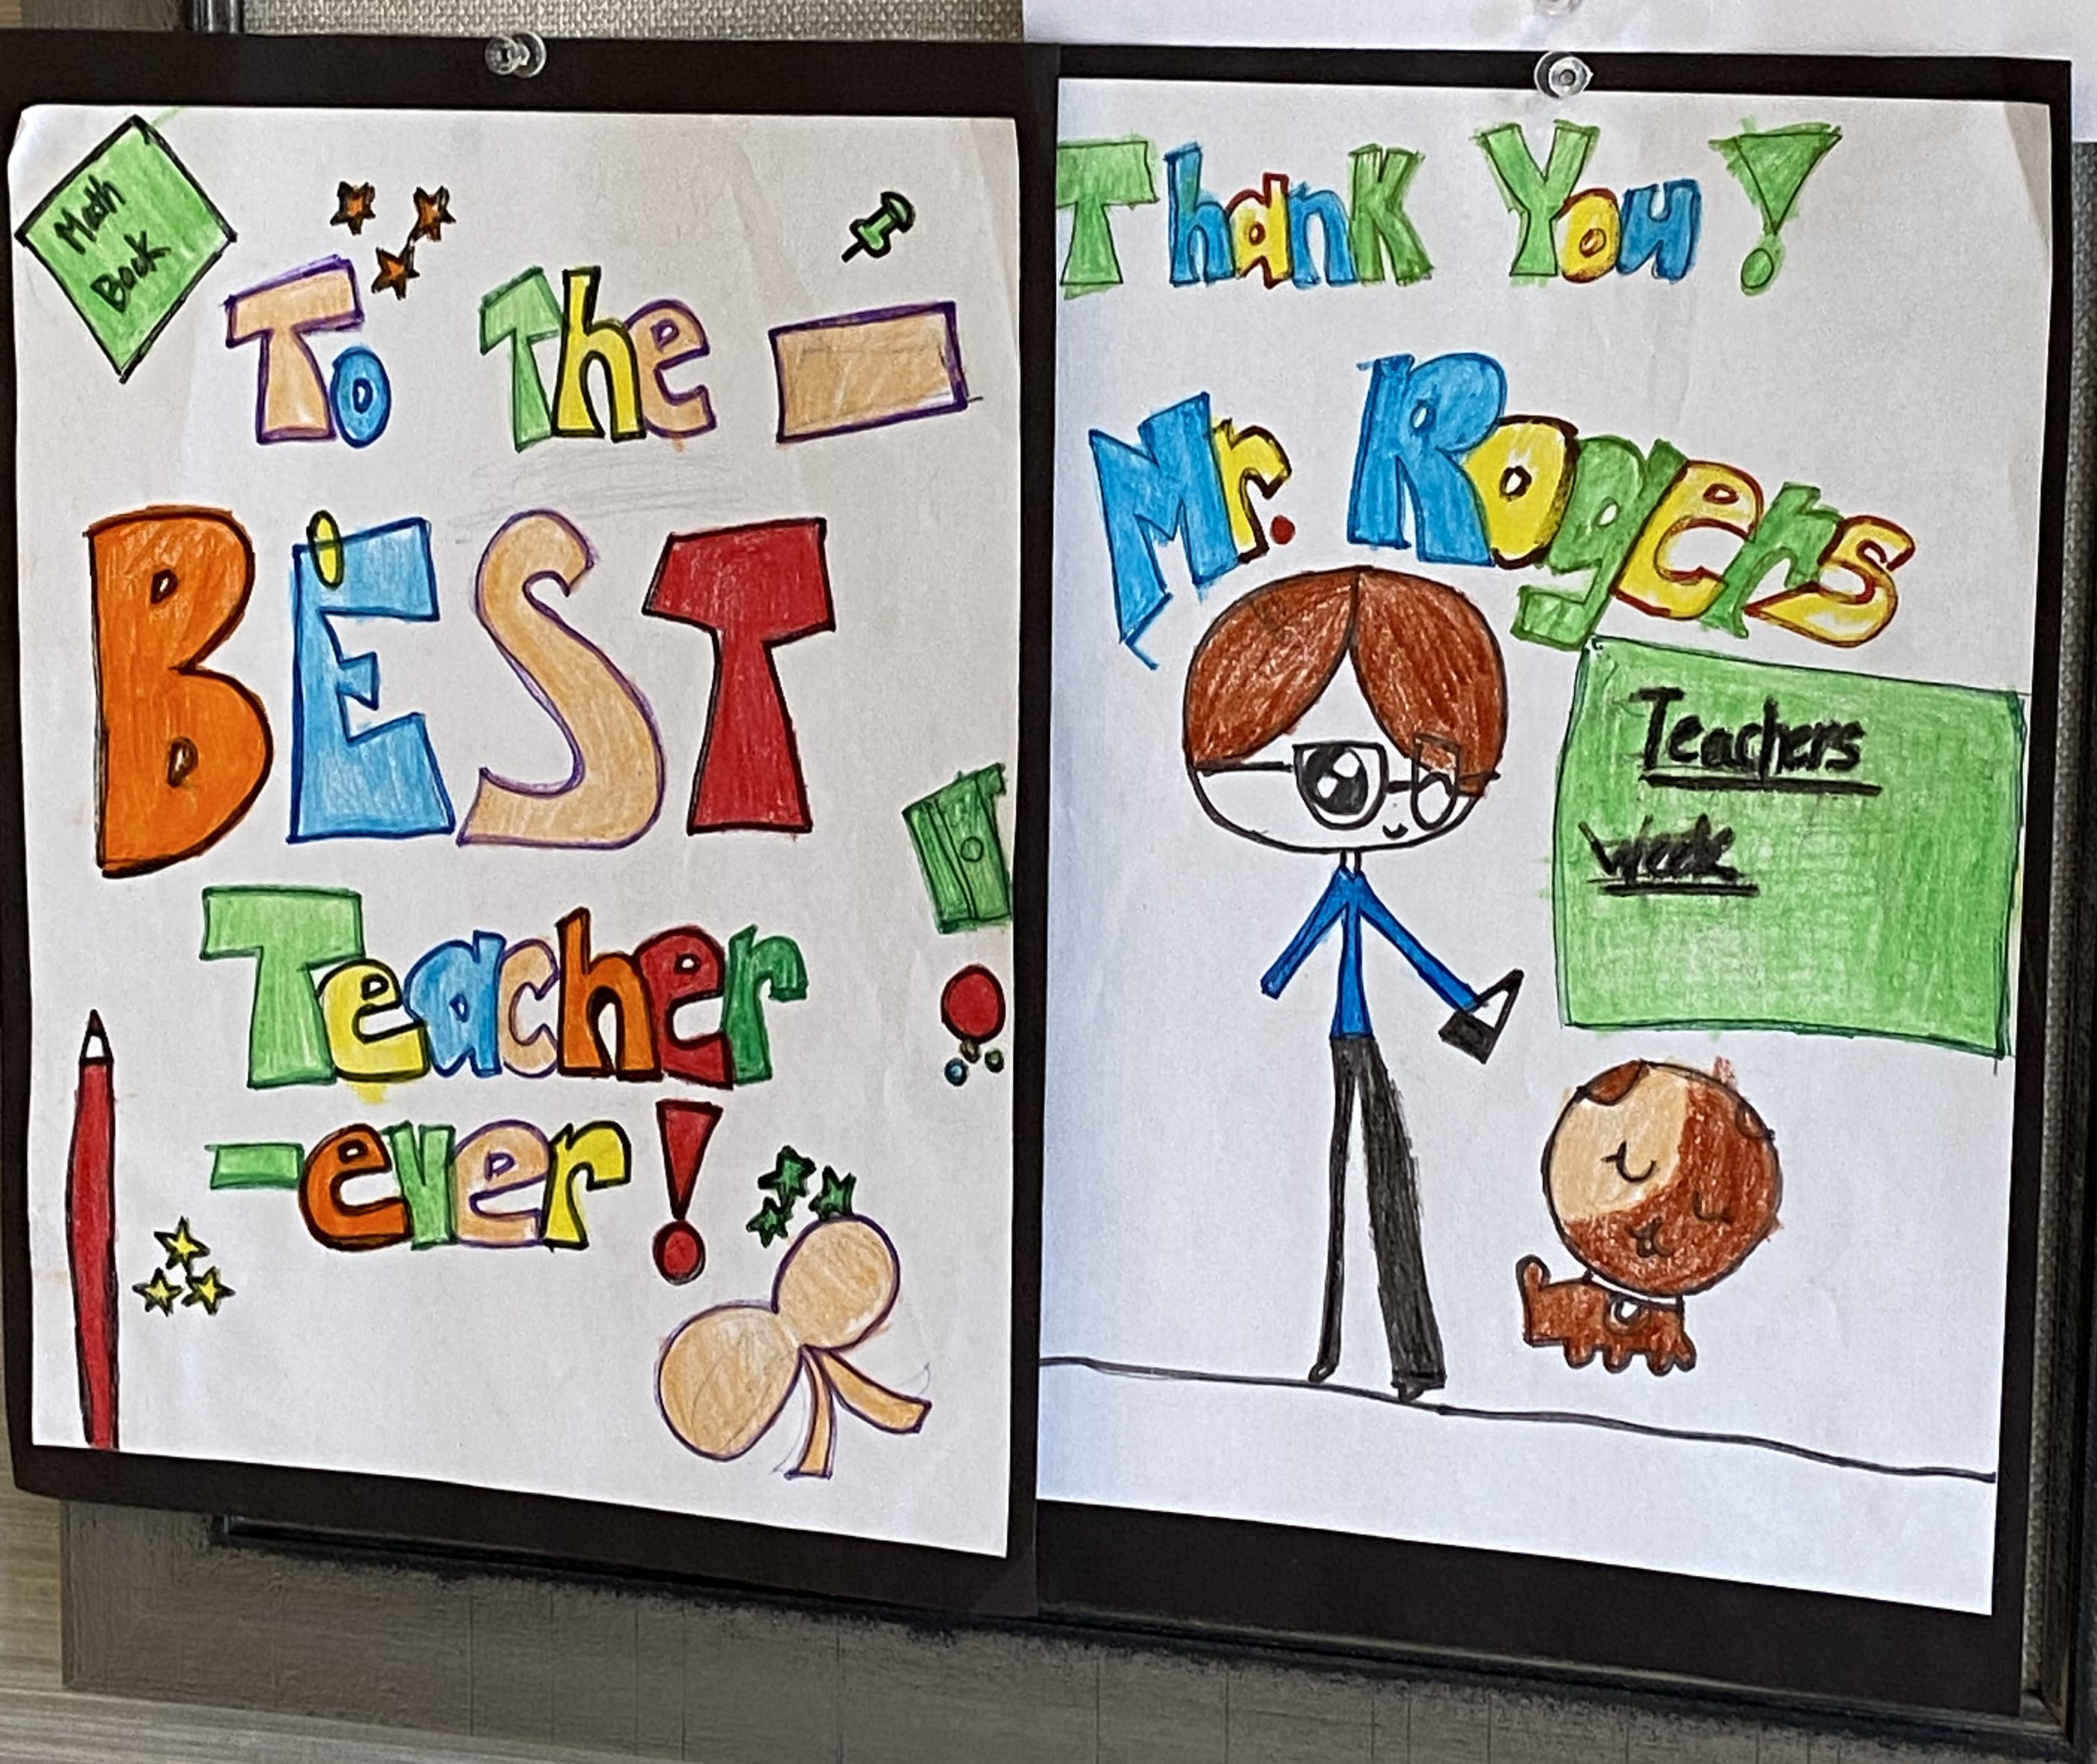 Math
Book
To The —
BEST
Teacher
-ever!
Thank You!
Mr. Rogers
Teachers
week